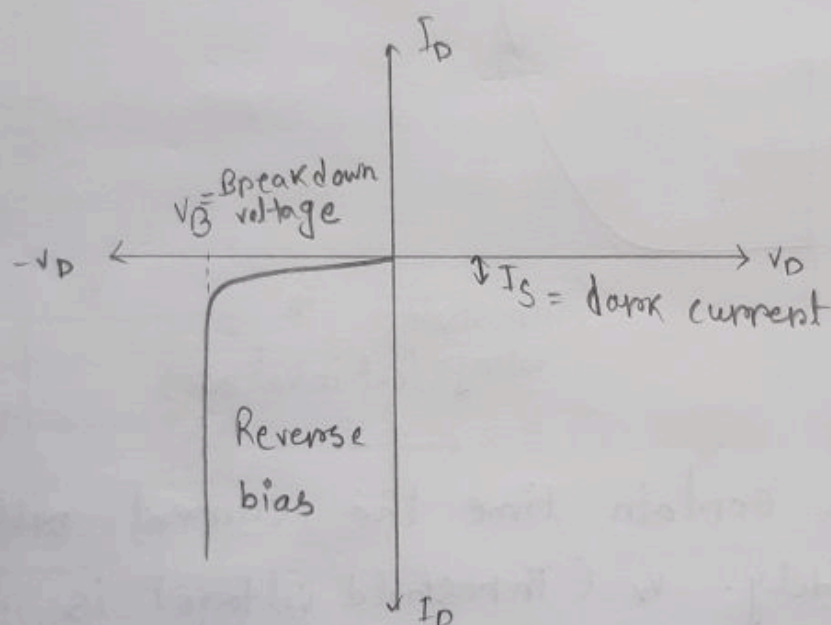 I_D
V_B = Breakdown
voltage
-V_D
V_D
I_S = dark current
Reverse
bias
I_D